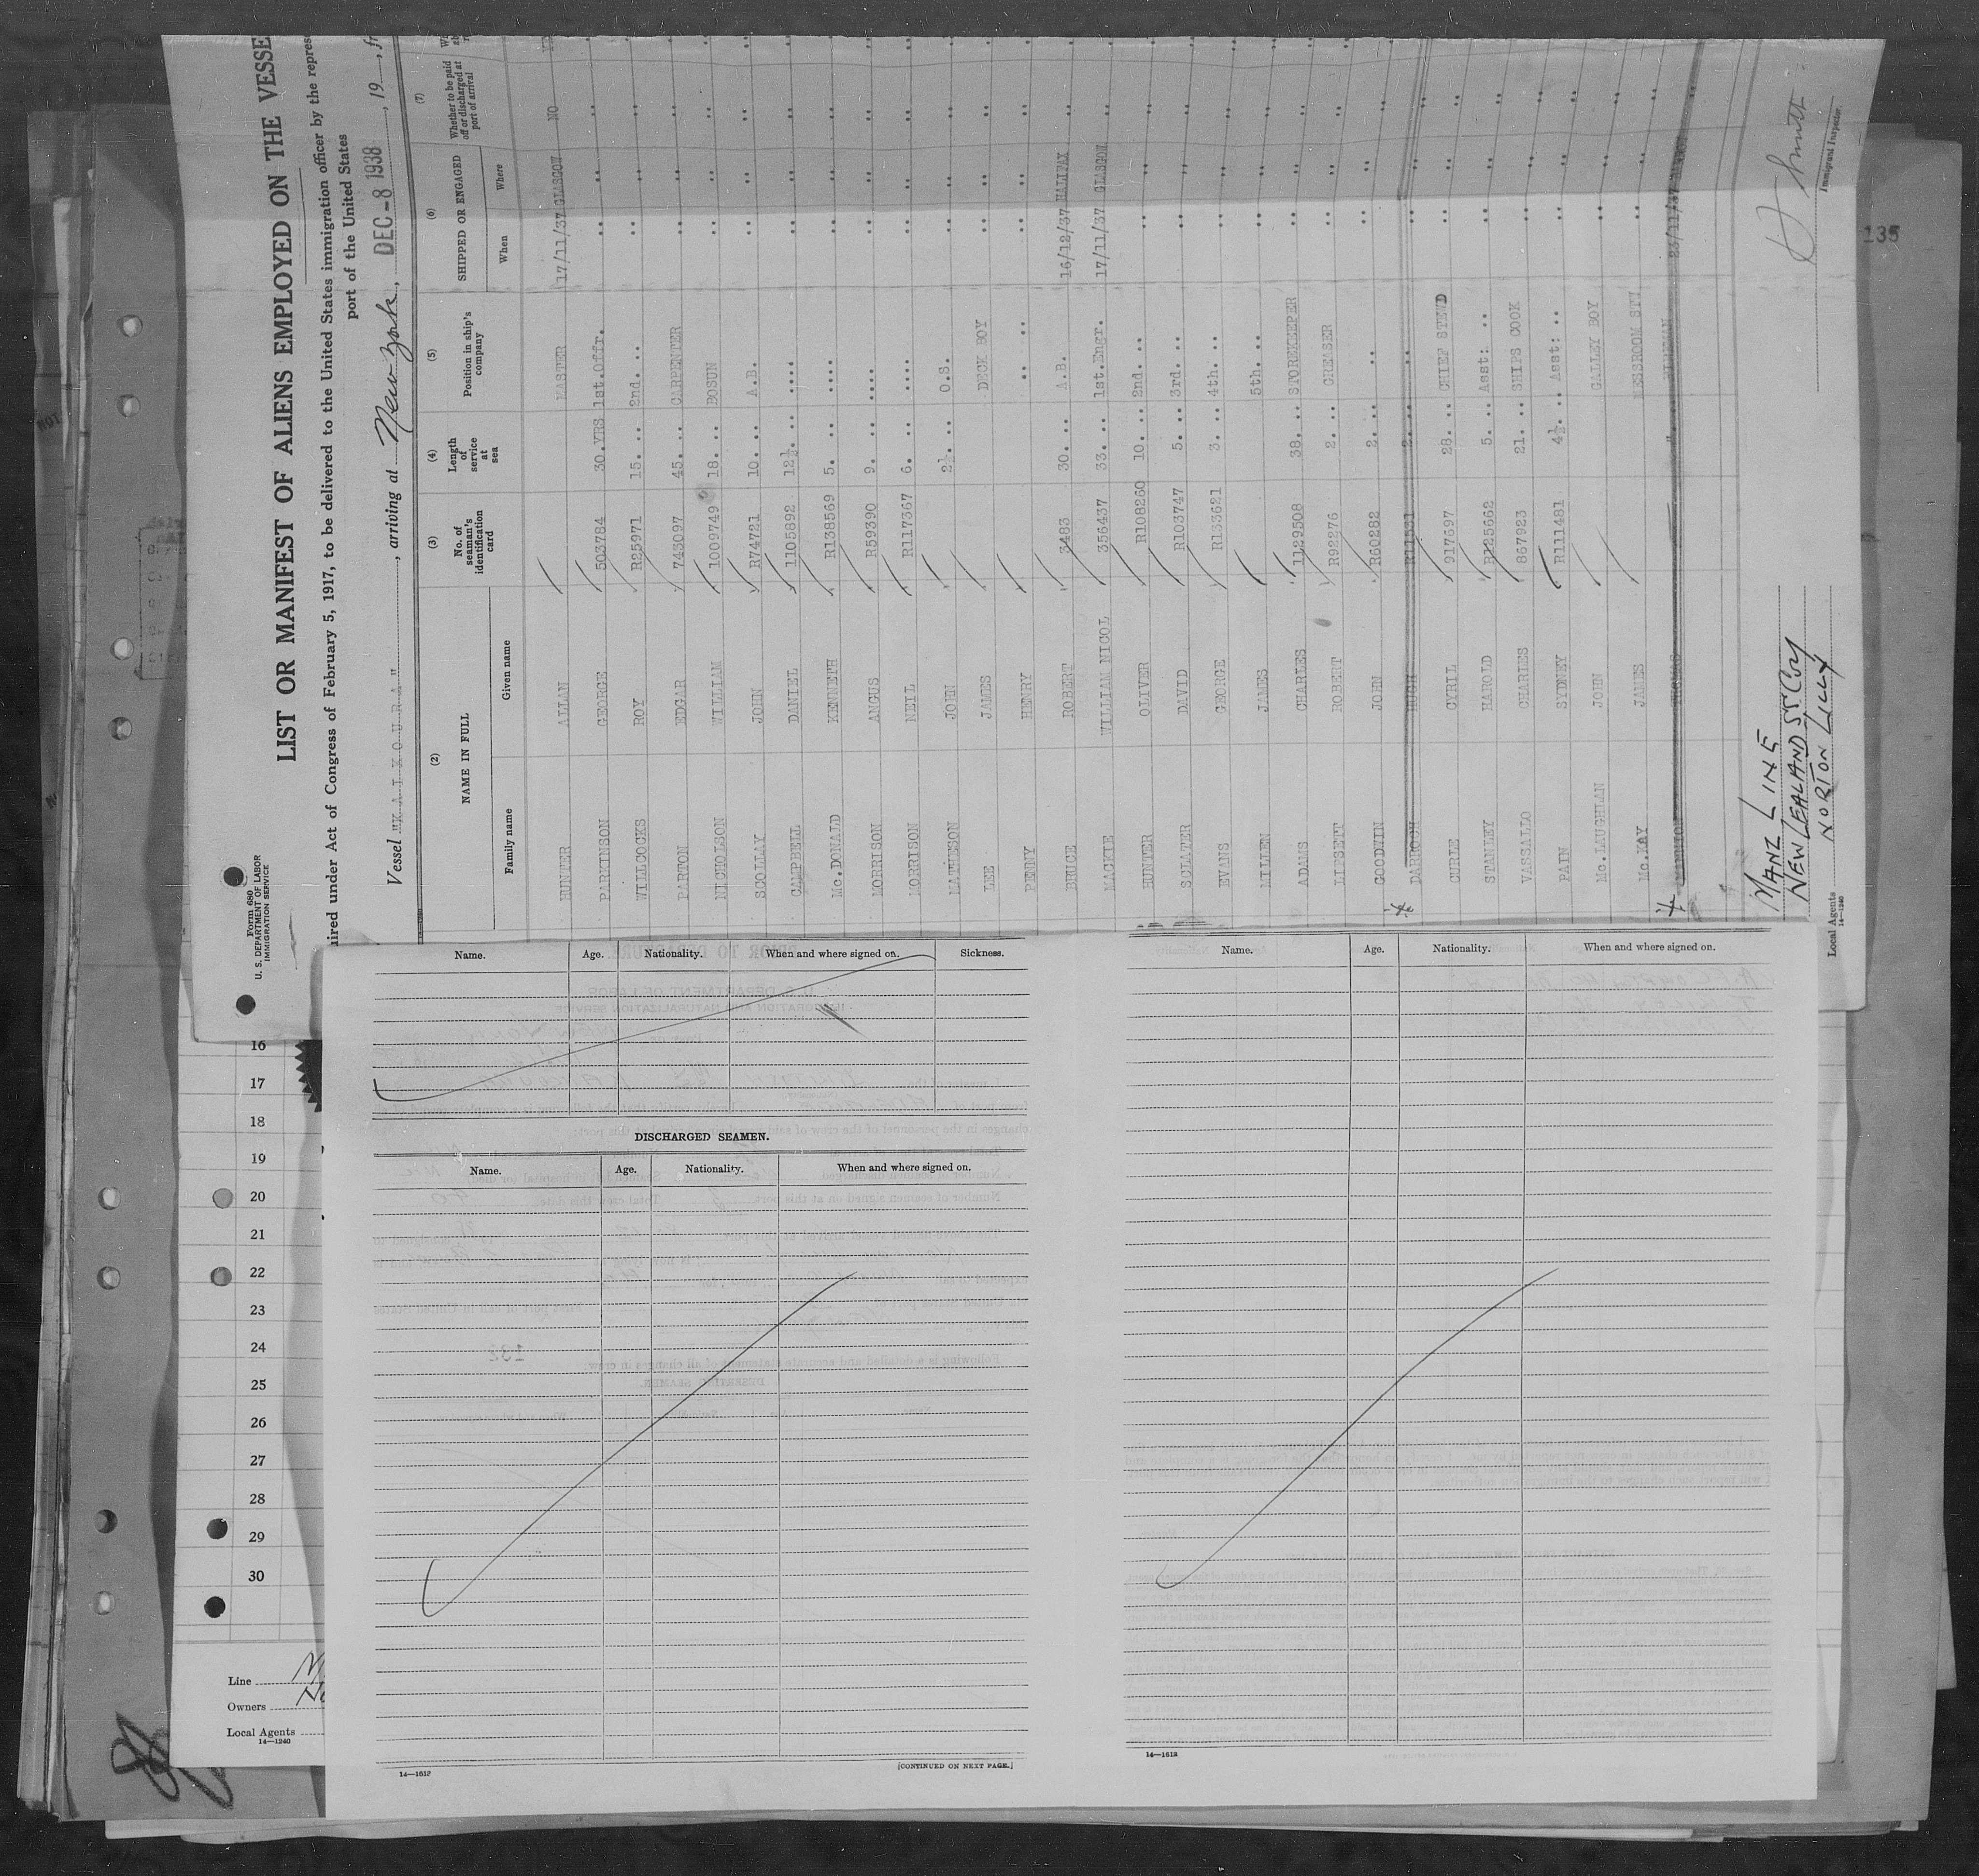 Form 680
U. S. DEPARTMENT OF LABOR
IMMIGRATION SERVICE
LIST OR MANIFEST OF ALIENS EMPLOYED ON THE VESSE
uired under Act of Congress of February 5, 1917, to be delivered to the United States immigration officer by the repres
port of the United States
Vessel "K A I K O U R A", arriving at New York, DEC - 8 1938, 19
(2) (3) (4) (5) (6) (7)
NAME IN FULL No. of seaman's identification card Length of service at sea Position in ship's company SHIPPED OR ENGAGED Whether to be paid off or discharged at port of arrival
Family name Given name When Where
HUNTER ALLAN MASTER 17/11/37 GLASGOW NO
PARKINSON GEORGE 503784 30.YRS 1st.Offr. .. .. ..
WILLCOCKS ROY R25971 15. .. 2nd. .. .. .. ..
PAPTON EDGAR 743097 45. .. CARPENTER .. .. ..
NICHOLSON WILLIAM 1009749 18. .. BOSUN .. .. ..
SCOLLAY JOHN R74721 10. .. A.B. .. .. ..
CAMPBELL DANIEL 1105892 12½. .. .... .. .. ..
Mc.DONALD KENNETH R138569 5. .. .... .. .. ..
MORRISON ANGUS R59390 9. .. .... .. .. ..
MORRISON NEIL R117367 6. .. .... .. .. ..
MATHESON JOHN 2½. .. O.S. .. .. ..
LEE JAMES DECK BOY .. .. ..
PENNY HENRY .. .. .. .. ..
BRUCE ROBERT 3483 30. .. A.B. 16/12/37 HALIFAX ..
MACKIE WILLIAM NICOL 356437 33. .. 1st.Engr. 17/11/37 GLASGOW ..
HUNTER OLIVER R108260 10. .. 2nd. .. .. .. ..
SCLATER DAVID R103747 5. .. 3rd. .. .. .. ..
EVANS GEORGE R133621 3. .. 4th. .. .. .. ..
MILLEN JAMES 5th. .. .. .. ..
ADAMS CHARLES 1129508 38. .. STOREKEEPER .. .. ..
LIPSETT ROBERT R92276 2. .. GREASER .. .. ..
GOODWIN JOHN R60282 2. .. .. .. .. ..
DARROCH HUGH R11531 2. .. .. .. .. ..
CURIE CYRIL 917697 28. .. CHIEF STEWD .. .. ..
STANLEY HAROLD R125662 5. .. Asst: .. .. .. ..
VASSALLO CHARLES 867923 21. .. SHIPS COOK .. .. ..
PAIN SYDNEY R111481 4½. .. Asst: .. .. .. ..
Mc.LAUGHLAN JOHN GALLEY BOY .. .. ..
Mc.KAY JAMES MESSROOM STW. .. .. ..
THOMAS 23/11/37
MANZ LINE
NEW ZEALAND SS Coy
Local Agents NORTON LILLY
14—1240
Immigrant Inspector.
135
Name. Age. Nationality. When and where signed on. Sickness.
DISCHARGED SEAMEN.
Name. Age. Nationality. When and where signed on.
14—1612
[CONTINUED ON NEXT PAGE.]
Name. Age. Nationality. When and where signed on.
14—1612
16
17
18
19
20
21
22
23
24
25
26
27
28
29
30
Line
Owners
Local Agents
14—1240